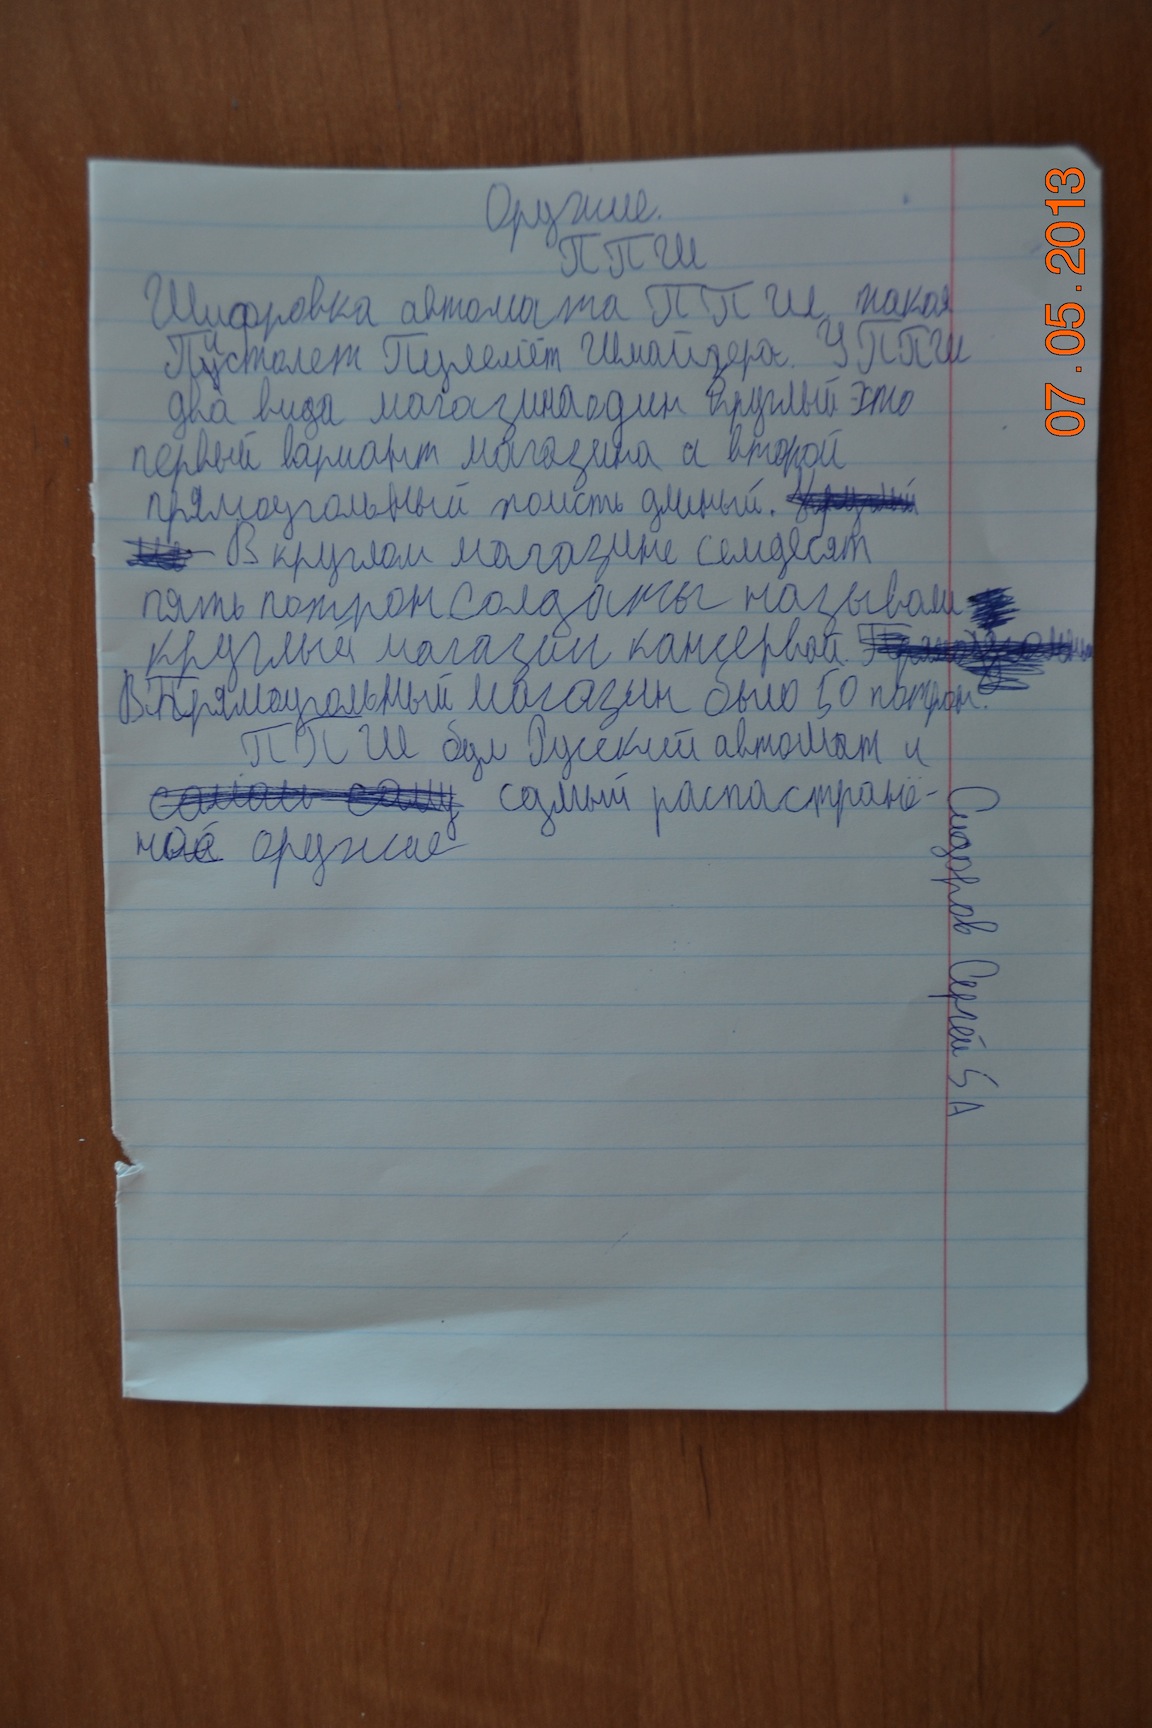 Оружие.
ППШ
Шифровка автомата ППШ такая
Пистолет Пулемёт Шмайдера. У ППШ
два вида магазина один круглый это
первый вариант магазина а второй
прямоугольный тоисть длиный.
В круглом магазине семдесят
пять потрон солдаты называли
круглый магазин кансервой.
В Прямоугольный магазин было 50 потрон.
ППШ был Русский автомат и
самый распастранё-
ное оружие
Сидоров Сергей 5 А
07.05.2013